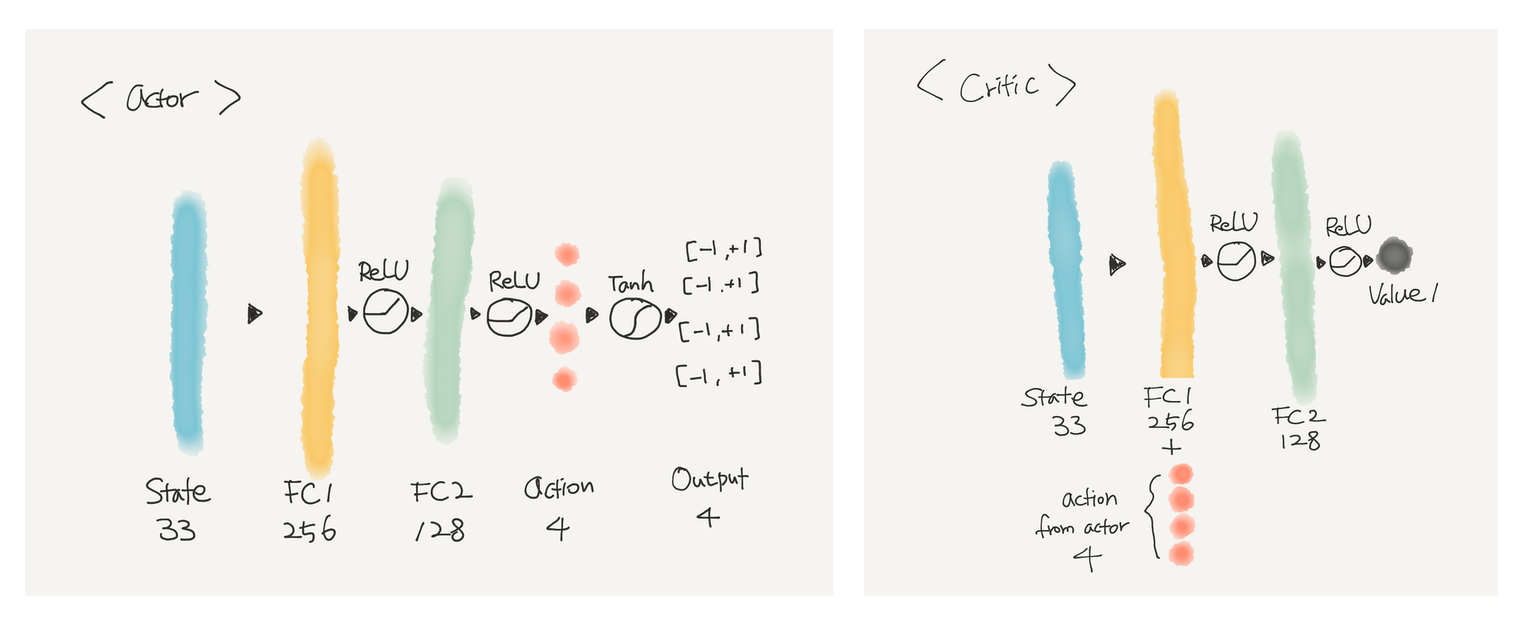 < Actor >
ReLU
ReLU
Tanh
[-1,+1]
[-1.+1]
[-1,+1]
[-1,+1]
State
33
FC1
256
FC2
128
action
4
Output
4
< Critic >
ReLU
ReLU
Value 1
State
33
FC1
256
+
FC2
128
action
from actor
4